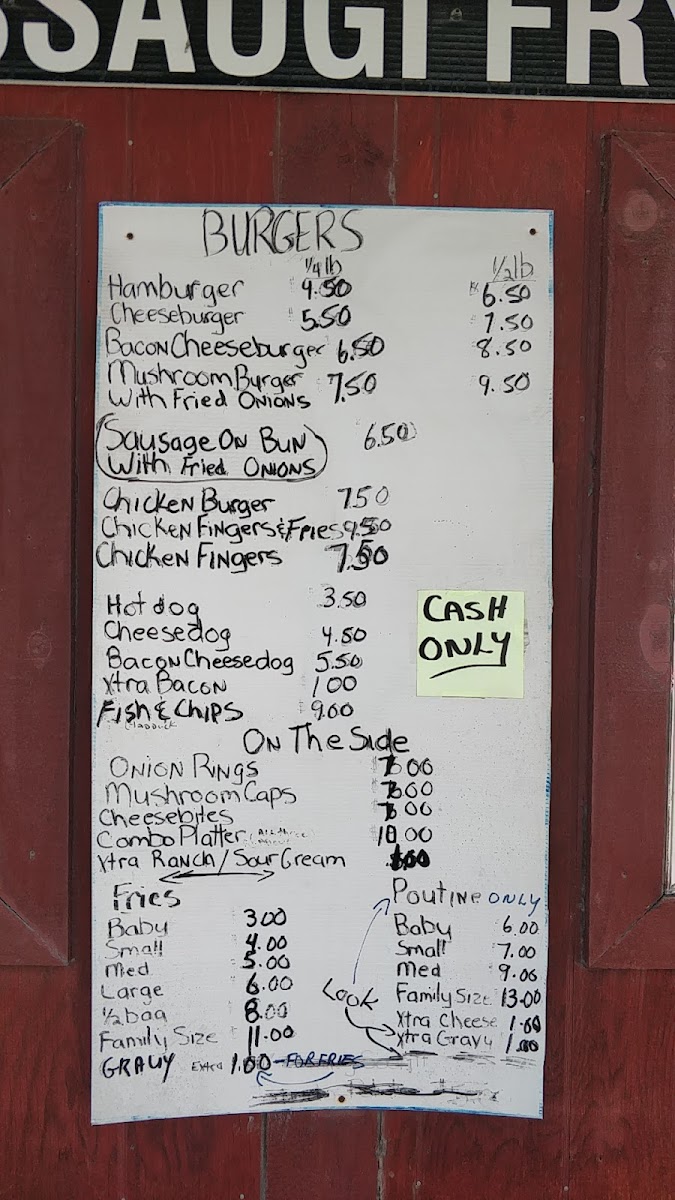 SSAUGI FRY
BURGERS
1/4 lb 1/2 lb
Hamburger 4.50 6.50
Cheeseburger 5.50 7.50
Bacon Cheeseburger 6.50 8.50
Mushroom Burger 7.50 9.50
With Fried Onions
Sausage On Bun 6.50
With Fried Onions
Chicken Burger 7.50
Chicken Fingers & Fries 9.50
Chicken Fingers 7.50
Hot dog 3.50
Cheesedog 4.50
Bacon Cheesedog 5.50
Xtra Bacon 1.00
Fish & Chips 9.00
Haddock
CASH
ONLY
On The Side
Onion Rings 7.00
Mushroom Caps 7.00
Cheesebites 7.00
Combo Platter 10.00
Xtra Ranch / Sour Cream
Fries
Baby 3.00
Small 4.00
Med 5.00
Large 6.00
1/2 bag 8.00
Family Size 11.00
GRAVY Extra 1.00 - FOR FRIES
Look
Poutine ONLY
Baby 6.00
Small 7.00
Med 9.00
Family Size 13.00
Xtra Cheese 1.00
Xtra Gravy 1.00